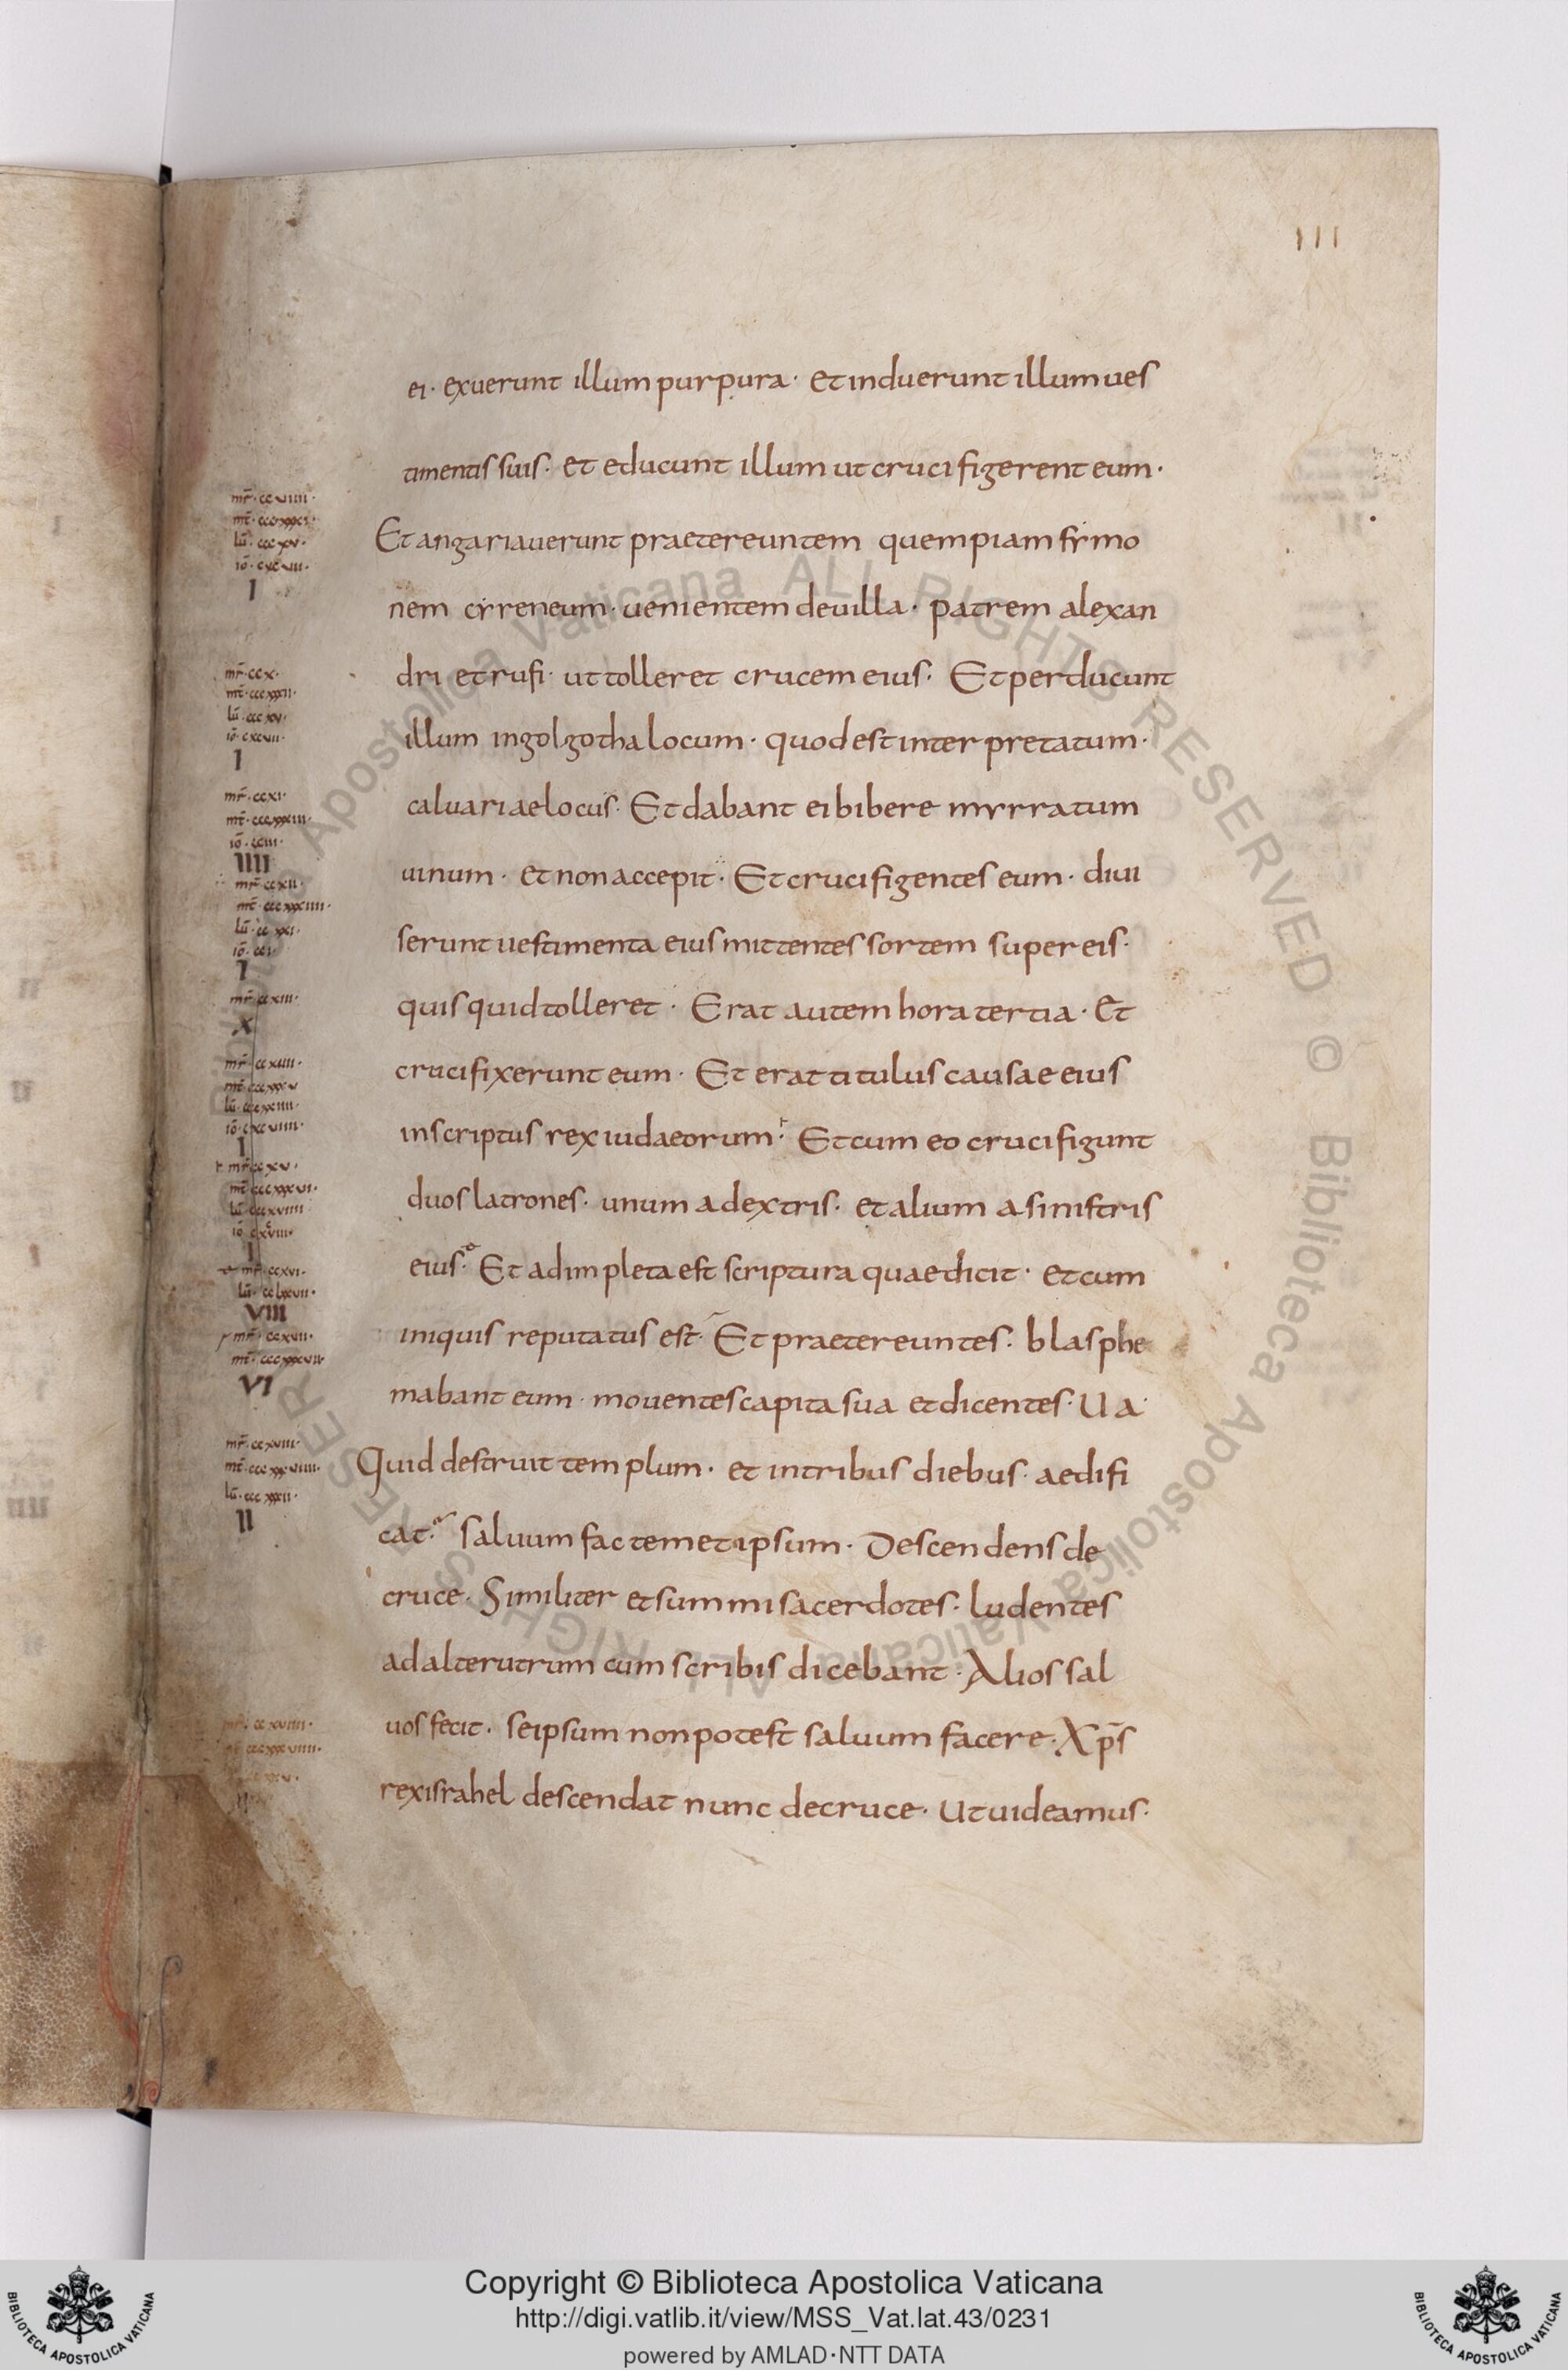 111
ei · exuerunt illum purpura · Et induerunt illum ues
timentis suis · et educunt illum ut crucifigerent eum ·
mr̄ · ccviiii ·
mt̄ · cccxxxi ·
lū · cccxv ·
iō · cxcvii ·
I
Et angariauerunt praetereuntem quempiam symo
nem cyreneum · uenientem de uilla · patrem alexan
dri et rufi · ut tolleret crucem eius · Et perducunt
mr̄ · ccx ·
mt̄ · cccxxxii ·
lū · cccxv ·
iō · cxcvii ·
I
illum in golgotha locum · quod est interpretatum ·
caluariae locus · Et dabant ei bibere myrratum
mr̄ · ccxi ·
mt̄ · cccxxxiii ·
iō · cciii ·
IIII
uinum · et non accepit · Et crucifigentes eum · diui
mr̄ · ccxii ·
mt̄ · cccxxxiiii ·
lū · ccxxi ·
iō · cci ·
I
serunt uestimenta eius mittentes sortem super eis ·
quis quid tolleret · Erat autem hora tertia · Et
mr̄ · ccxiii ·
X
crucifixerunt eum · Et erat titulus causae eius
mr̄ · ccxiiii ·
mt̄ · cccxxxv
lū · cccxxiiii ·
iō · cxcviiii ·
I
inscriptus rex iudaeorum · Et cum eo crucifigunt
mr̄ · ccxv ·
mt̄ · cccxxxvi ·
lū · cccxviiii
iō · cxcviii ·
I
duos latrones · unum a dextris · et alium a sinistris
eius · Et adimpleta est scriptura quae dicit · et cum
mr̄ · ccxvi ·
lū · cclxxvii ·
VIII
iniquis reputatus est · Et praetereuntes · blasphe
mr̄ · ccxvii ·
mt̄ · cccxxxvii
VI
mabant eum · mouentes capita sua et dicentes · Ua ·
Quid destruit templum · et in tribus diebus · aedifi
mr̄ · ccxviii ·
mt̄ · cccxxxviiii ·
lū · cccxxii ·
II
cat · saluum fac temetipsum · Descendens de
cruce · Similiter et summi sacerdotes · ludentes
ad alterutrum cum scribis dicebant · Alios sal
uos fecit · seipsum non potest saluum facere · Xp̄s
mr̄ · ccxviiii ·
rex israhel descendat nunc de cruce · Ut uideamus ·
Copyright © Biblioteca Apostolica Vaticana
http://digi.vatlib.it/view/MSS_Vat.lat.43/0231
powered by AMLAD·NTT DATA
BIBLIOTECA APOSTOLICA VATICANA
BIBLIOTECA APOSTOLICA VATICANA
Biblioteca Apostolica Vaticana ALL RIGHTS RESERVED ©